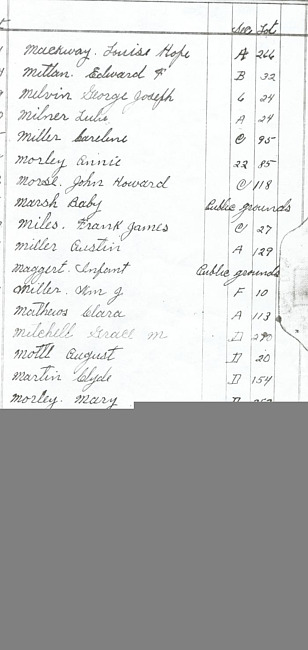 Sec Lot
Mackway. Louise Hope A 266
Mittan. Edward F B 32
Melvin George Joseph 6 24
Milner Lulu A 24
Miller Careline C 95
Morley Annie 22 85
Morse. John Howard C 118
Marsh Baby Public grounds
Miles. Frank James C 27
Miller Austin A 129
Maggert. Infant Public grounds
Miller. Wm J. F 10
Mathews Clara A 113
Mitchell Grace M D 290
Mott August D 20
Martin Clyde D 154
Morley. Mary D